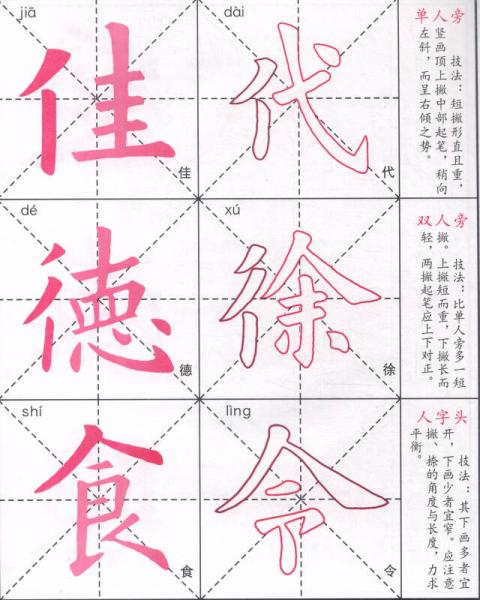 jiā
佳
佳
dài
代
代
单人旁
技法：短撇形直且重，
竖画顶上撇中部起笔，稍向
左斜，而呈右倾之势。
dé
德
德
xú
徐
徐
双人旁
技法：比单人旁多一短
撇。上撇短而重，下撇长而
轻，两撇起笔应上下对正。
shí
食
食
lìng
令
令
人字头
技法：其下画多者宜
开，下画少者宜窄。应注意
撇、捺的角度与长度，力求
平衡。